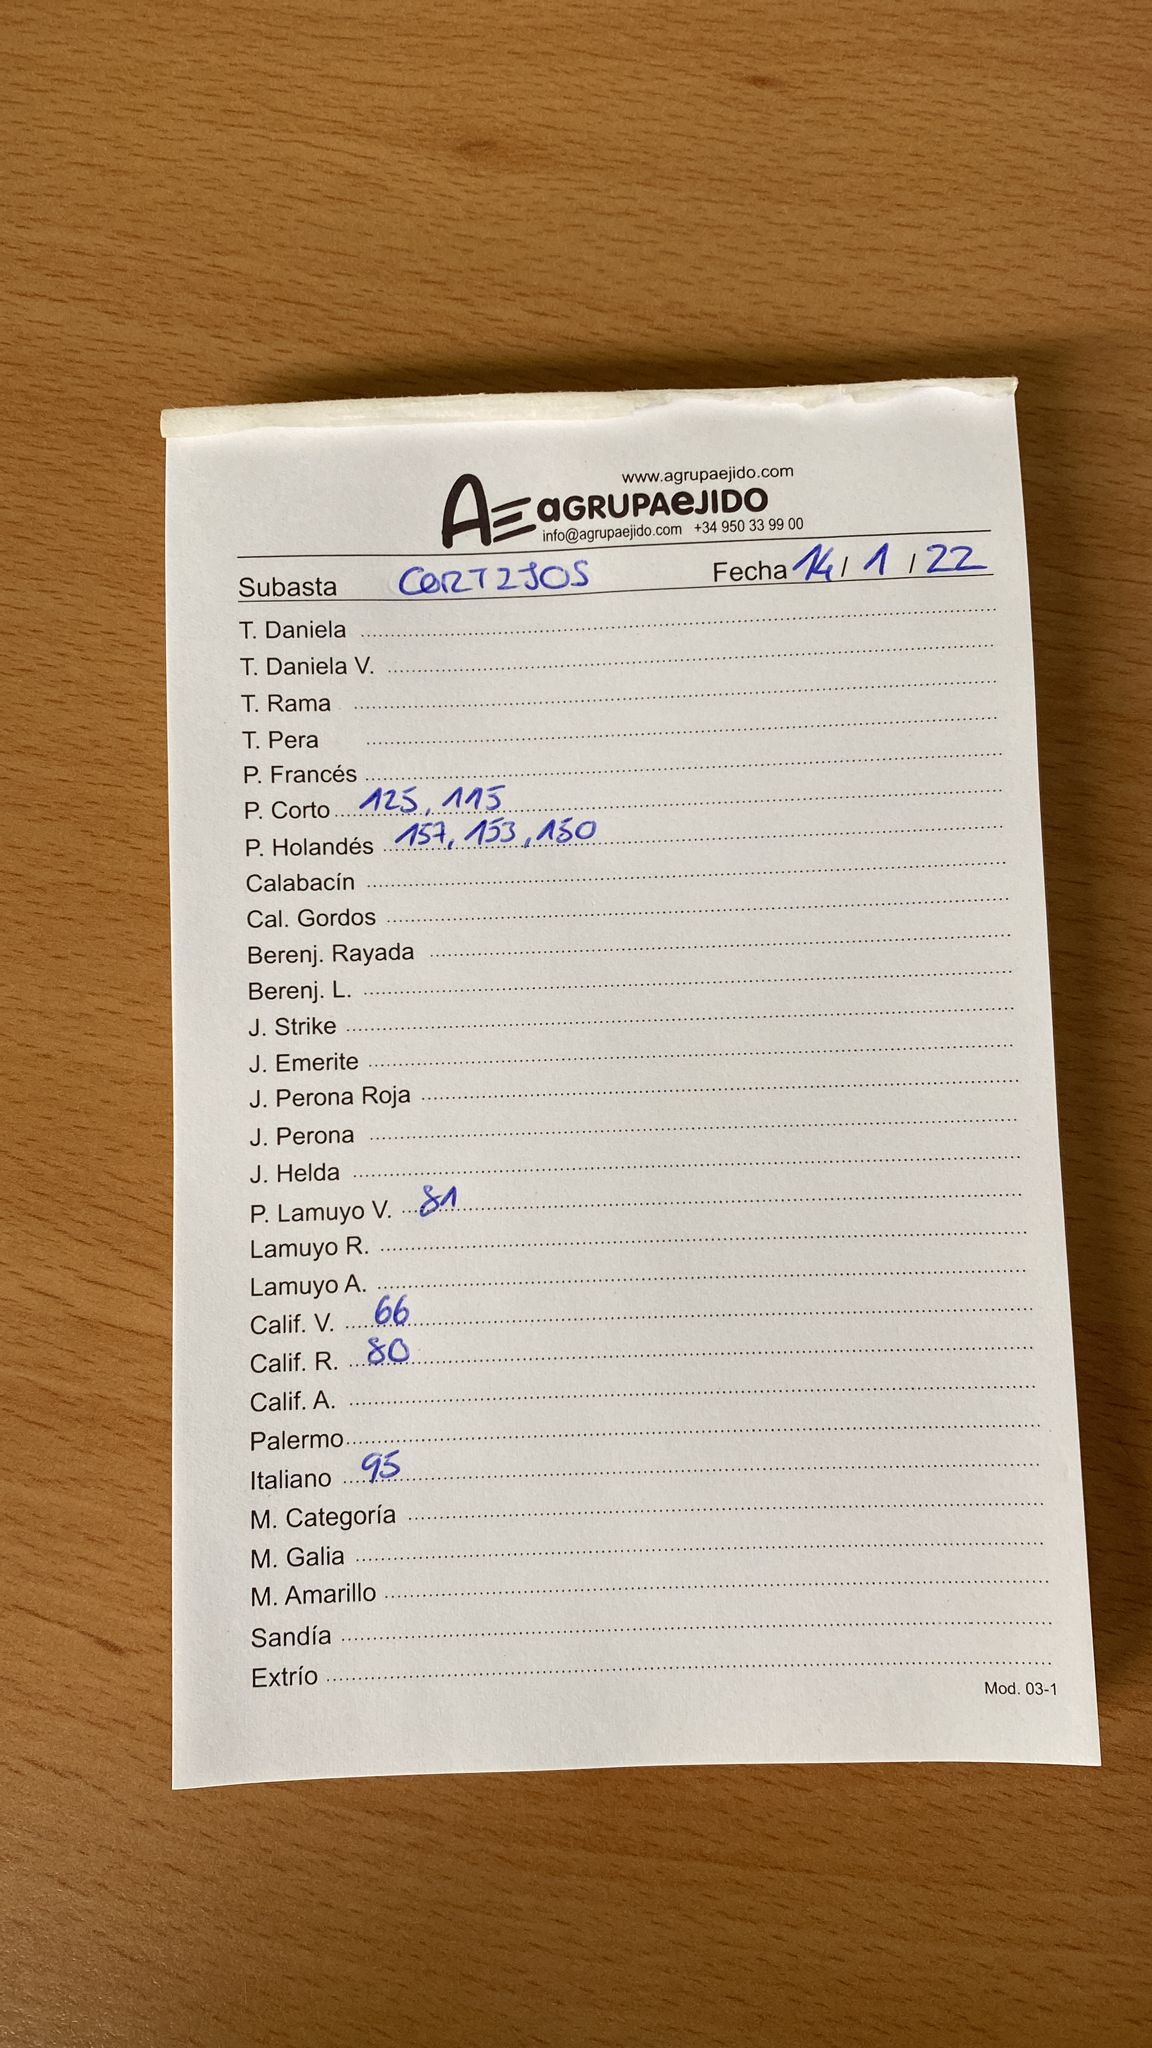 www.agrupaejido.com
AE aGRUPAeJIDO
info@agrupaejido.com +34 950 33 99 00
Subasta CORTIJOS Fecha 14 / 1 / 22
T. Daniela
T. Daniela V.
T. Rama
T. Pera
P. Francés
P. Corto 125, 115
P. Holandés 157, 153, 150
Calabacín
Cal. Gordos
Berenj. Rayada
Berenj. L.
J. Strike
J. Emerite
J. Perona Roja
J. Perona
J. Helda
P. Lamuyo V. 81
Lamuyo R.
Lamuyo A.
Calif. V. 66
Calif. R. 80
Calif. A.
Palermo
Italiano 95
M. Categoría
M. Galia
M. Amarillo
Sandía
Extrío
Mod. 03-1